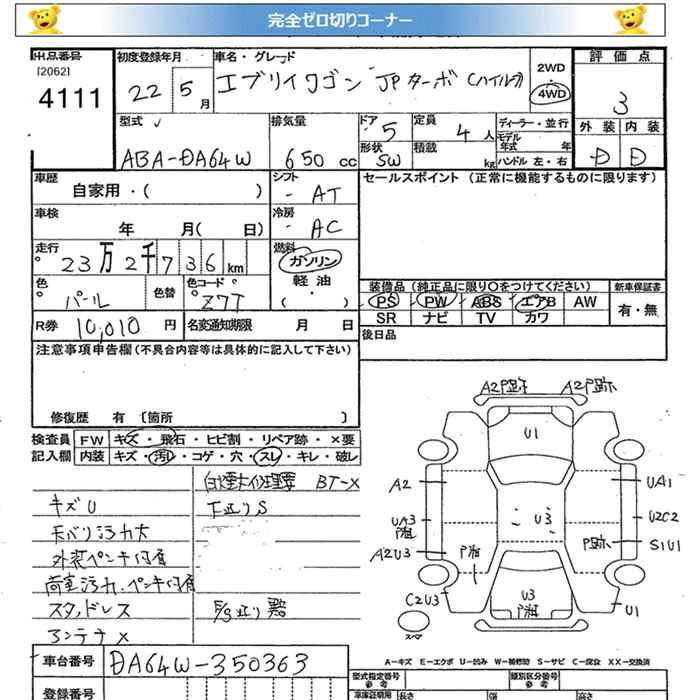 完全ゼロ切りコーナー
出品番号 初度登録年月 車名・グレード 評価点
[2062] 4111 22年 5月 エブリイワゴン JPターボ (ハイルーフ) 2WD ・ 4WD 3
型式 排気量 ドア 5 定員 4人 ディーラー・並行 外装 内装
ABA-DA64W 650cc 形状 SW 積載 kg モデル年式 年 ハンドル 左・右 D D
車歴 自家用・( ) シフト AT セールスポイント (正常に機能するものに限ります)
車検 年 月( 日) 冷房 AC
走行 23万2千736km 燃料 ガソリン 軽油・( )
色 パール 色替 色コード Z7T 装備品(純正品に限り○をつけてください) 新車保証書
PS PW ABS エアB AW 有・無
SR ナビ TV カワ
R券 10,010円 名変通知期限 月 日 後日品
注意事項申告欄(不具合内容等は具体的に記入して下さい)
修復歴 有 〔箇所 〕
検査員記入欄 FW キズ・飛石・ヒビ割・リペア跡・×要
内装 キズ・汚レ・コゲ・穴・スレ・キレ・破レ
キズU
天バリ汚れ大
外装ペンキ付着
荷室汚れ、ペンキ付着
スタッドレス
アンテナ×
BT-×
下廻りS
A2P跡 A2P跡
U1
A2 UA1
UA3 U3 U2C2
A2U3 P跡 S1U1
C2U3 U3 U1
スペア
A-キズ E-エクボ U-凹み W-補修跡 S-サビ C-腐食 XX-交換済
車台番号 DA64W-350363
登録番号
型式指定番号 参考 類別区分番号 参考
車庫証明用 参考 長さ 幅 高さ